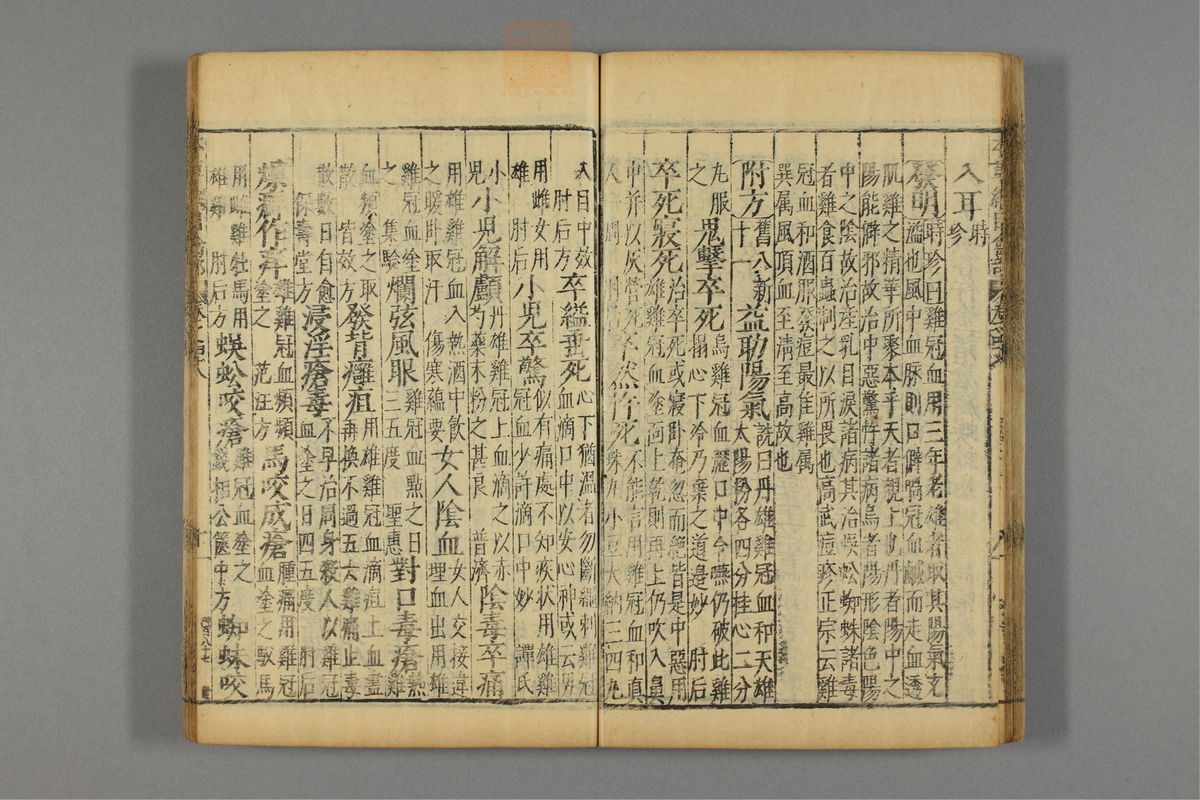 入耳時珍
發明時珍曰雞冠血用三年老雄者取其陽氣充
溢也風中血脉則口僻喎冠血鹹而走血透
肌雞之精華所聚本乎天者親上也丹者陽中之
陽能辟邪故治中惡驚忤諸病烏者陽形陰色陽
中之陰故治產乳目淚諸病其治蜈蚣蜘蛛諸毒
者雞食百蟲制之以所畏也高武痘疹正宗云雞
冠血和酒服發痘最佳雞屬
巽屬風頂血至清至高故也
附方舊八新十一益助陽氣詵曰丹雄雞冠血和天雄
太陽各四分桂心二分
丸服
之
鬼擊卒死烏雞冠血瀝口中令嚥仍破此雞
搨心下冷乃棄之道邊妙 肘后
卒死寢死治卒死或寢卧奄忽而絕皆是中惡用
雄雞冠血塗面上乾則再上仍吹入鼻
中并以灰營死
不能言用雞冠血和真
珠丸小豆大納三四丸
入
卒縊垂死心下猶溫者勿斷繩刺雞冠
血滴口中以安心神或云男
用雌女用
雄 肘后
小兒卒驚似有痛處不知疾状用雄雞
冠血少許滴口中妙 譚氏
小兒解顱丹雄雞冠上血滴之以赤
芍藥末粉之甚良 普濟
陰毒卒痛
用雄雞冠血入熱酒中飲
之暖卧取汗 傷寒蘊要
女人陰血女人交接違
理血出用雄
雞冠血塗
之 集驗
爛弦風眼雞冠血點之日
三五度 聖惠
對口毒瘡熱雞
血頻塗之取
散 皆效方
發背癰疽用雄雞冠血滴疽上血盡
再換不過五六雞痛止毒
散數日自愈
保壽堂方
浸淫瘡毒不早治周身殺人以雞
血塗之日四五度 肘后
雞冠血頻頻
塗之 范汪方
馬咬成瘡腫痛用雞冠
血塗之駁馬
用雌雞牡馬用
雄雞 肘后
蜈蚣咬瘡雞冠血塗之
錢相公篋中方
蜘蛛咬